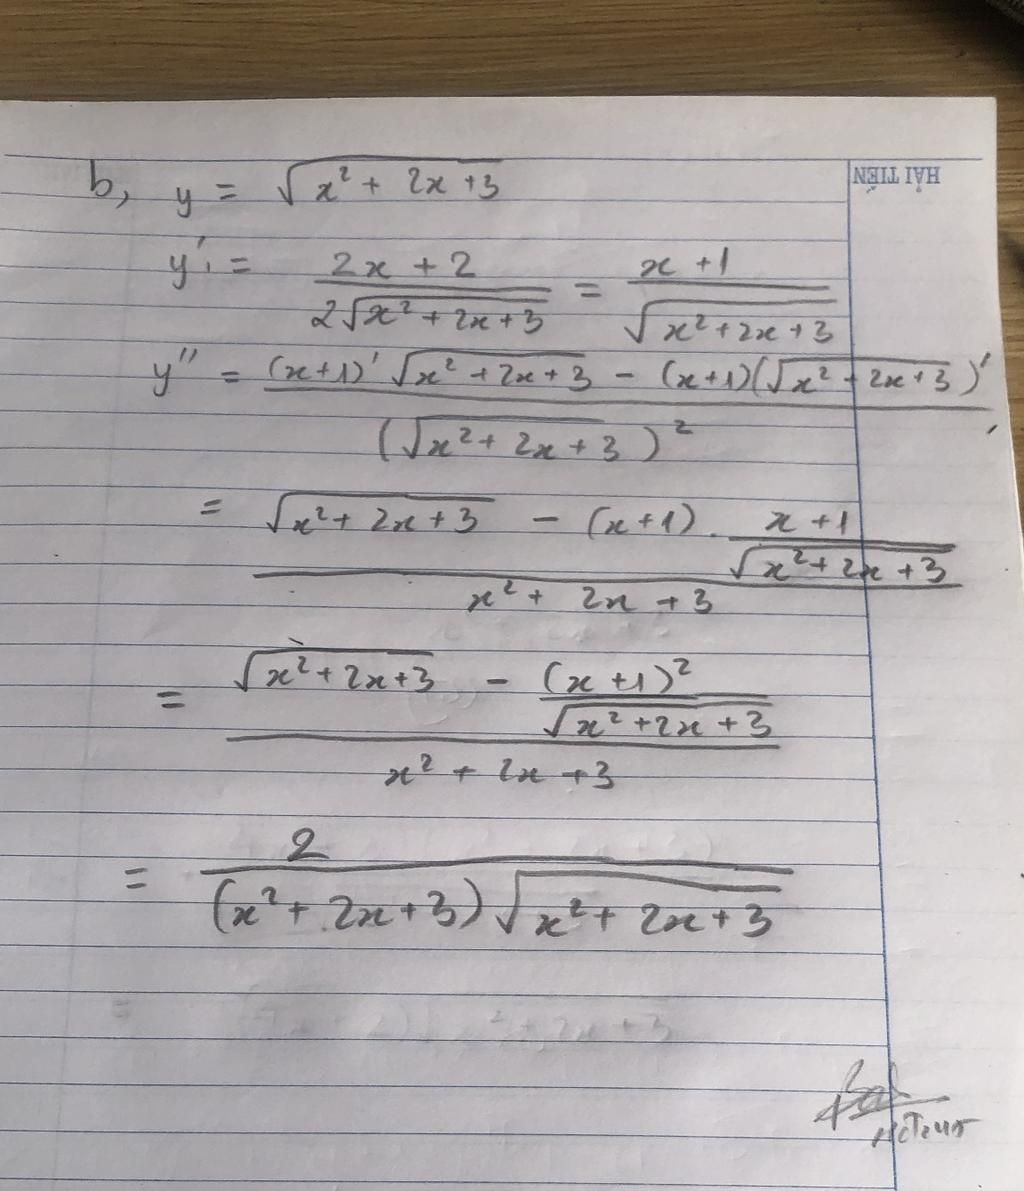 b, y = √(x² + 2x + 3)
HẢI TIẾN
y' = (2x + 2)/(2√(x² + 2x + 3)) = (x + 1)/√(x² + 2x + 3)
y'' = ((x+1)' √(x² + 2x + 3) - (x+1)(√(x² + 2x + 3))')/(√(x² + 2x + 3))²
= (√(x² + 2x + 3) - (x+1) . (x + 1)/√(x² + 2x + 3))/(x² + 2x + 3)
= (√(x² + 2x + 3) - (x + 1)²/√(x² + 2x + 3))/(x² + 2x + 3)
= 2/((x² + 2x + 3)√(x² + 2x + 3))